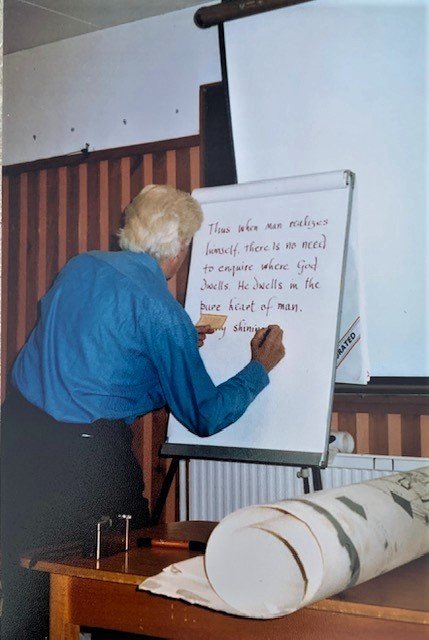 Thus when man realizes
himself, there is no need
to enquire where God
dwells. He dwells in the
pure heart of man.
shining
RATED